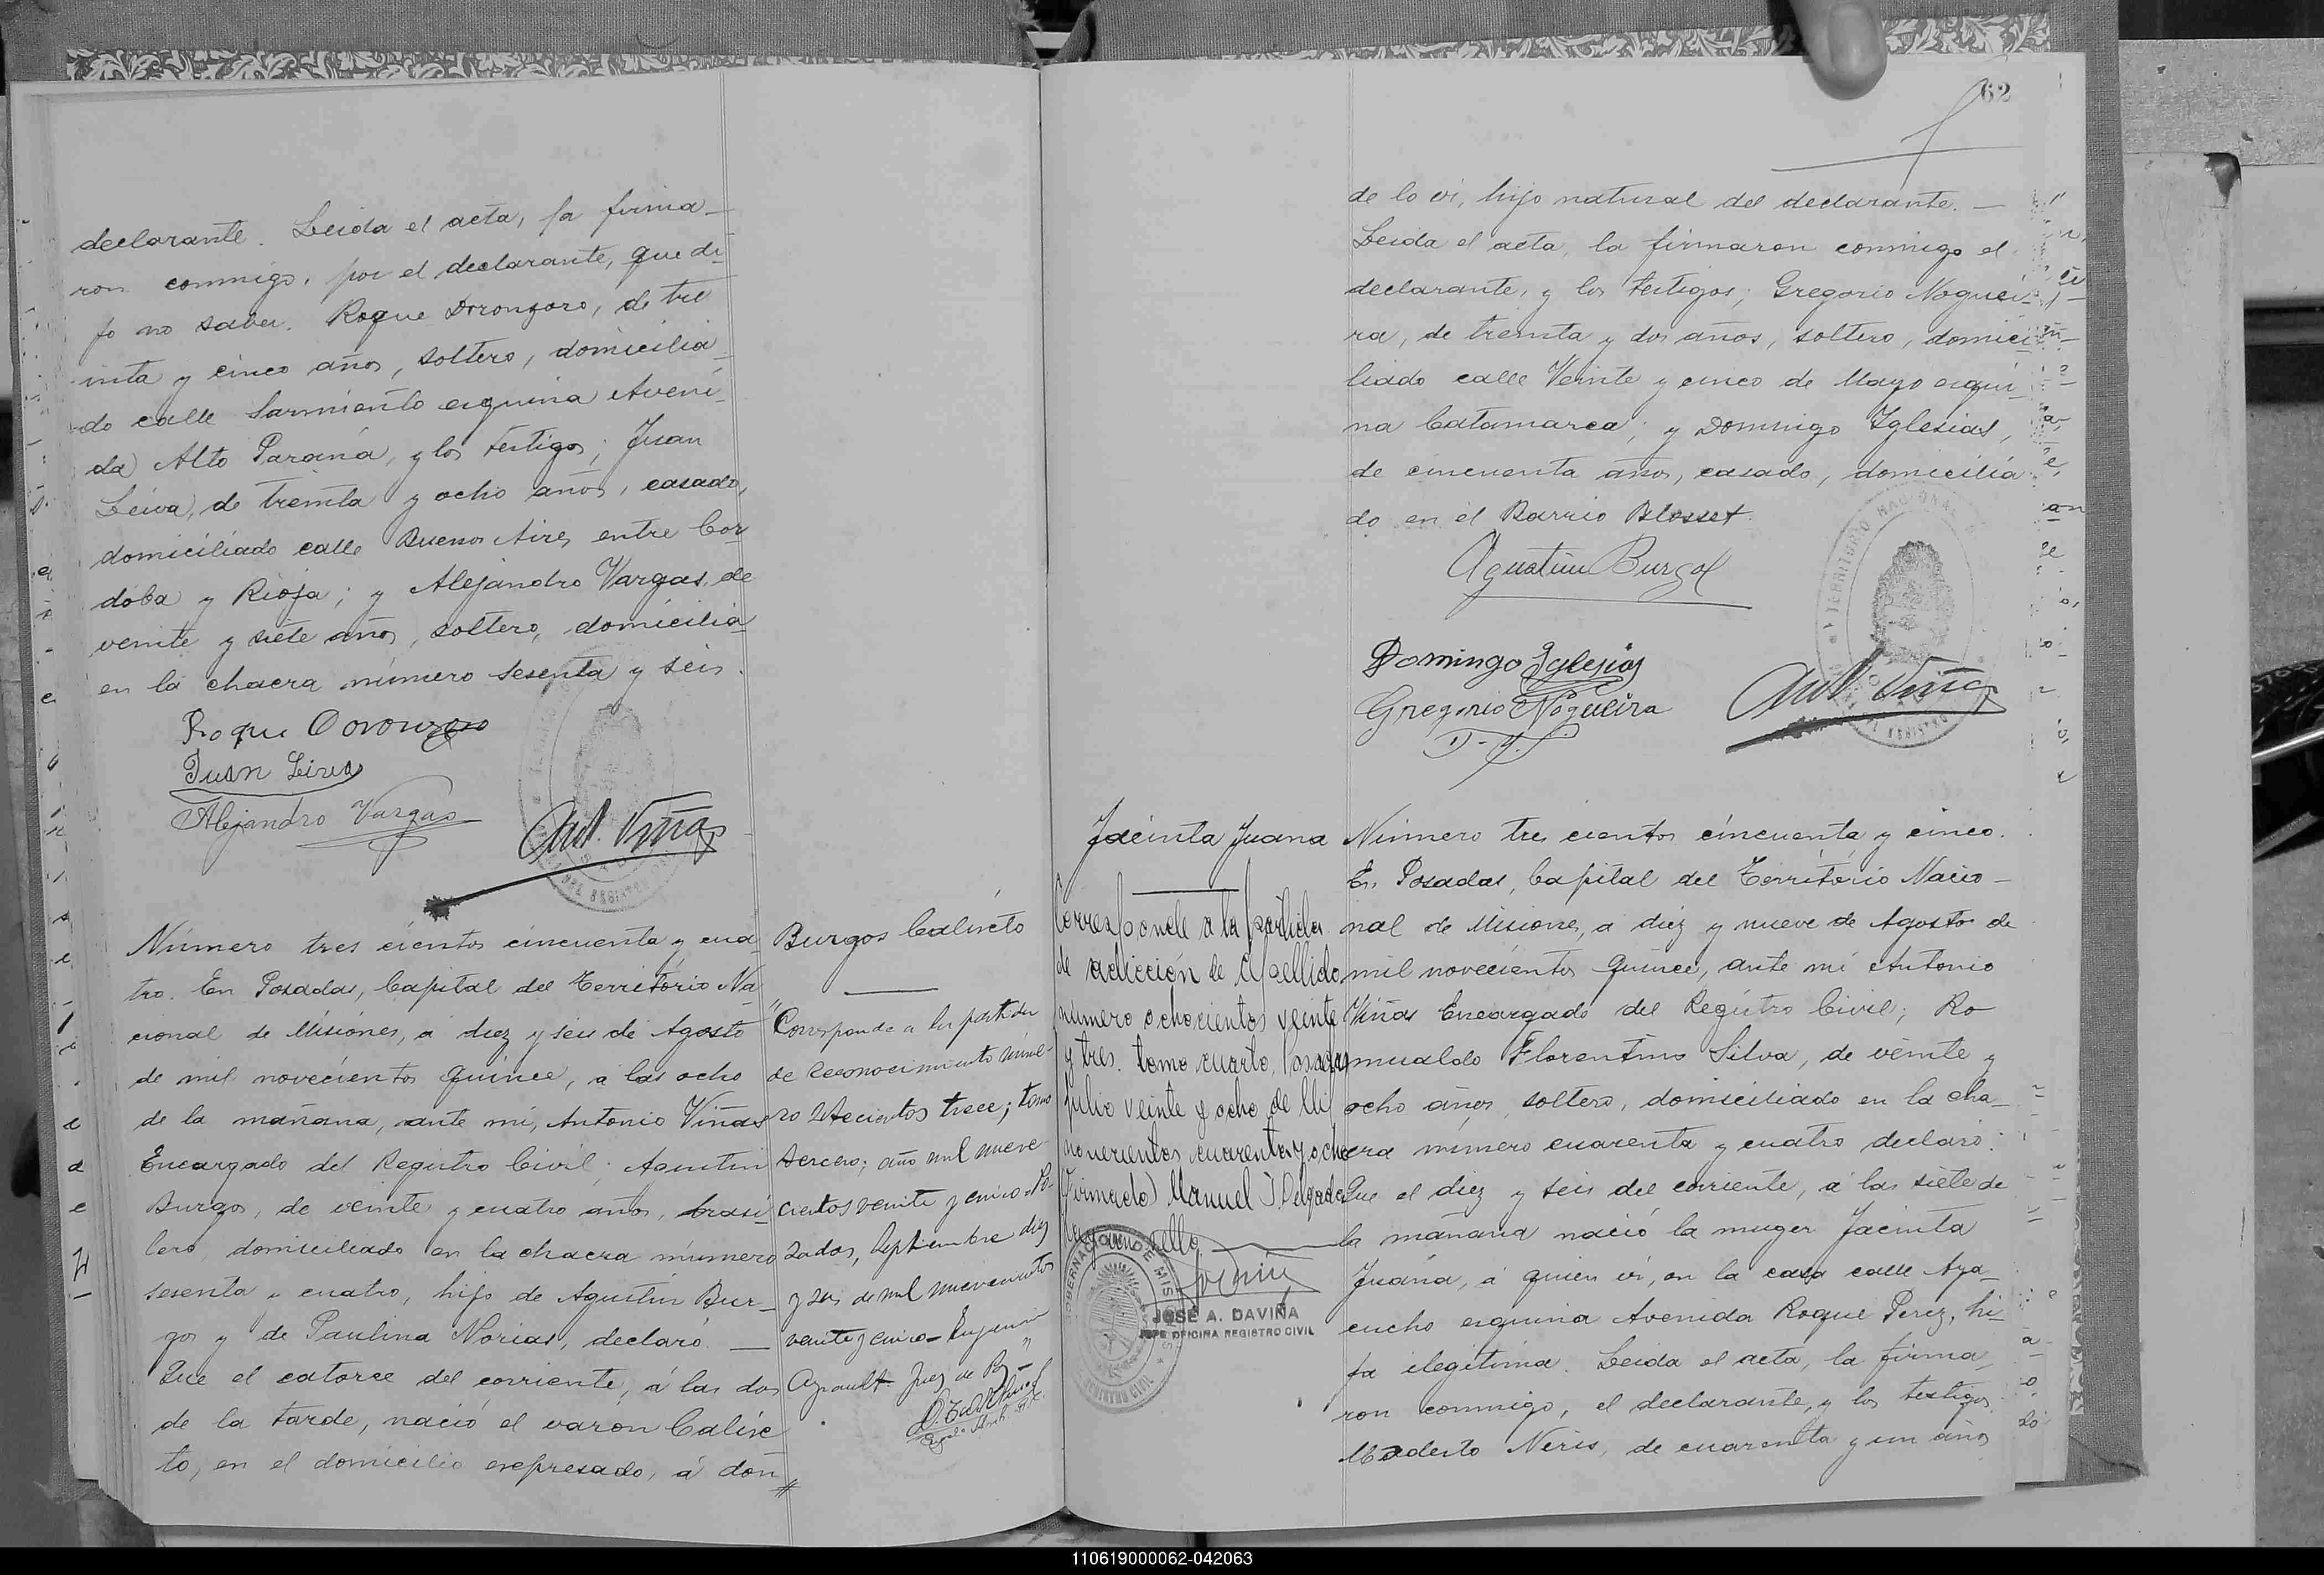 declarante. Leida el acta, la firma_
ron conmigo, por el declarante, que di_
jo no saber. Roque Doronzoro, de tre
inta y cinco años, soltero, domicilia_
do calle Sarmiento esquina Aveni_
da Alto Paraná, y los testigos; Juan
Leiva, de treinta y ocho años, casado,
domiciliado calle Buenos Aires entre Cor
doba y Rioja; y Alejandro Vargas, de
veinte y siete años, soltero, domicilia_
en la chacra número sesenta y seis.
Roque Doronzoro
Juan Leiva
Alejandro Vargas
Ant. Viñas
Número tres cientos cincuenta y cua_
tro. En Posadas, Capital del Territorio Na_
cional de Misiones, a diez y seis de Agosto
de mil novecientos quince, a las ocho
de la mañana, ante mi, Antonio Viñas
Encargado del Registro Civil; Agustin
Burgos, de veinte y cuatro años, brasi_
lero, domiciliado en la chacra número
sesenta y cuatro, hijo de Agustin Bur_
gos y de Paulina Norias, declaró. _
Que el catorce del corriente, á las dos
de la tarde, nació el varón Calixc
to, en el domicilio expresado, á don
Burgos Calixcto
"Corresponde a la partida
de reconocimiento núme-
ro setecientos trece; tomo
tercero; año mil nueve-
cientos veinte y cinco. Po-
sadas, Septiembre diez
y seis de mil novecientos
veinte y cinco_ Eugenio
Juez de Paz"
62
de lo vi, hijo natural del declarante. _
Leida el acta, la firmaron conmigo el
declarante, y los testigos; Gregorio Noguei_
ra, de treinta y dos años, soltero, domici_
liado calle Veinte y cinco de Mayo esqui_
na Catamarca; y Domingo Iglesias,
de cincuenta años, casado, domicilia_
do en el Barrio Blosset.
Agustin Burgos
Domingo Iglesias
Gregorio Nogueira
Ant. Viñas
Jacinta Juana
Corresponde a la partida
de adicción de apellido
número ochocientos veinte
y tres. tomo cuarto, Posadas
Julio veinte y ocho de Mil
novecientos cuarenta y ocho
(Firmado) Manuel J. Delgado
Hay un sello
GOBERNACION DE MISIONES
REGISTRO CIVIL
JOSÉ A. DAVIÑA
JEFE OFICINA REGISTRO CIVIL
Número tres cientos cincuenta y cinco.
En Posadas, Capital del Territorio Nacio_
nal de Misiones, a diez y nueve de Agosto de
mil novecientos quince, ante mi Antonio
Viñas Encargado del Registro Civil; Ro_
mualdo Florentino Silva, de veinte y
ocho años, soltero, domiciliado en la cha_
cra número cuarenta y cuatro declaró:
Que el diez y seis del corriente, á las siete de
la mañana nació la muger Jacinta
Juana, á quien vi, en la casa calle Aya_
cucho esquina Avenida Roque Perez, hi_
ja ilegítima. Leida el acta, la firma_
ron conmigo, el declarante, y los testigos
Modesto Neris, de cuarenta y un años
110619000062-042063